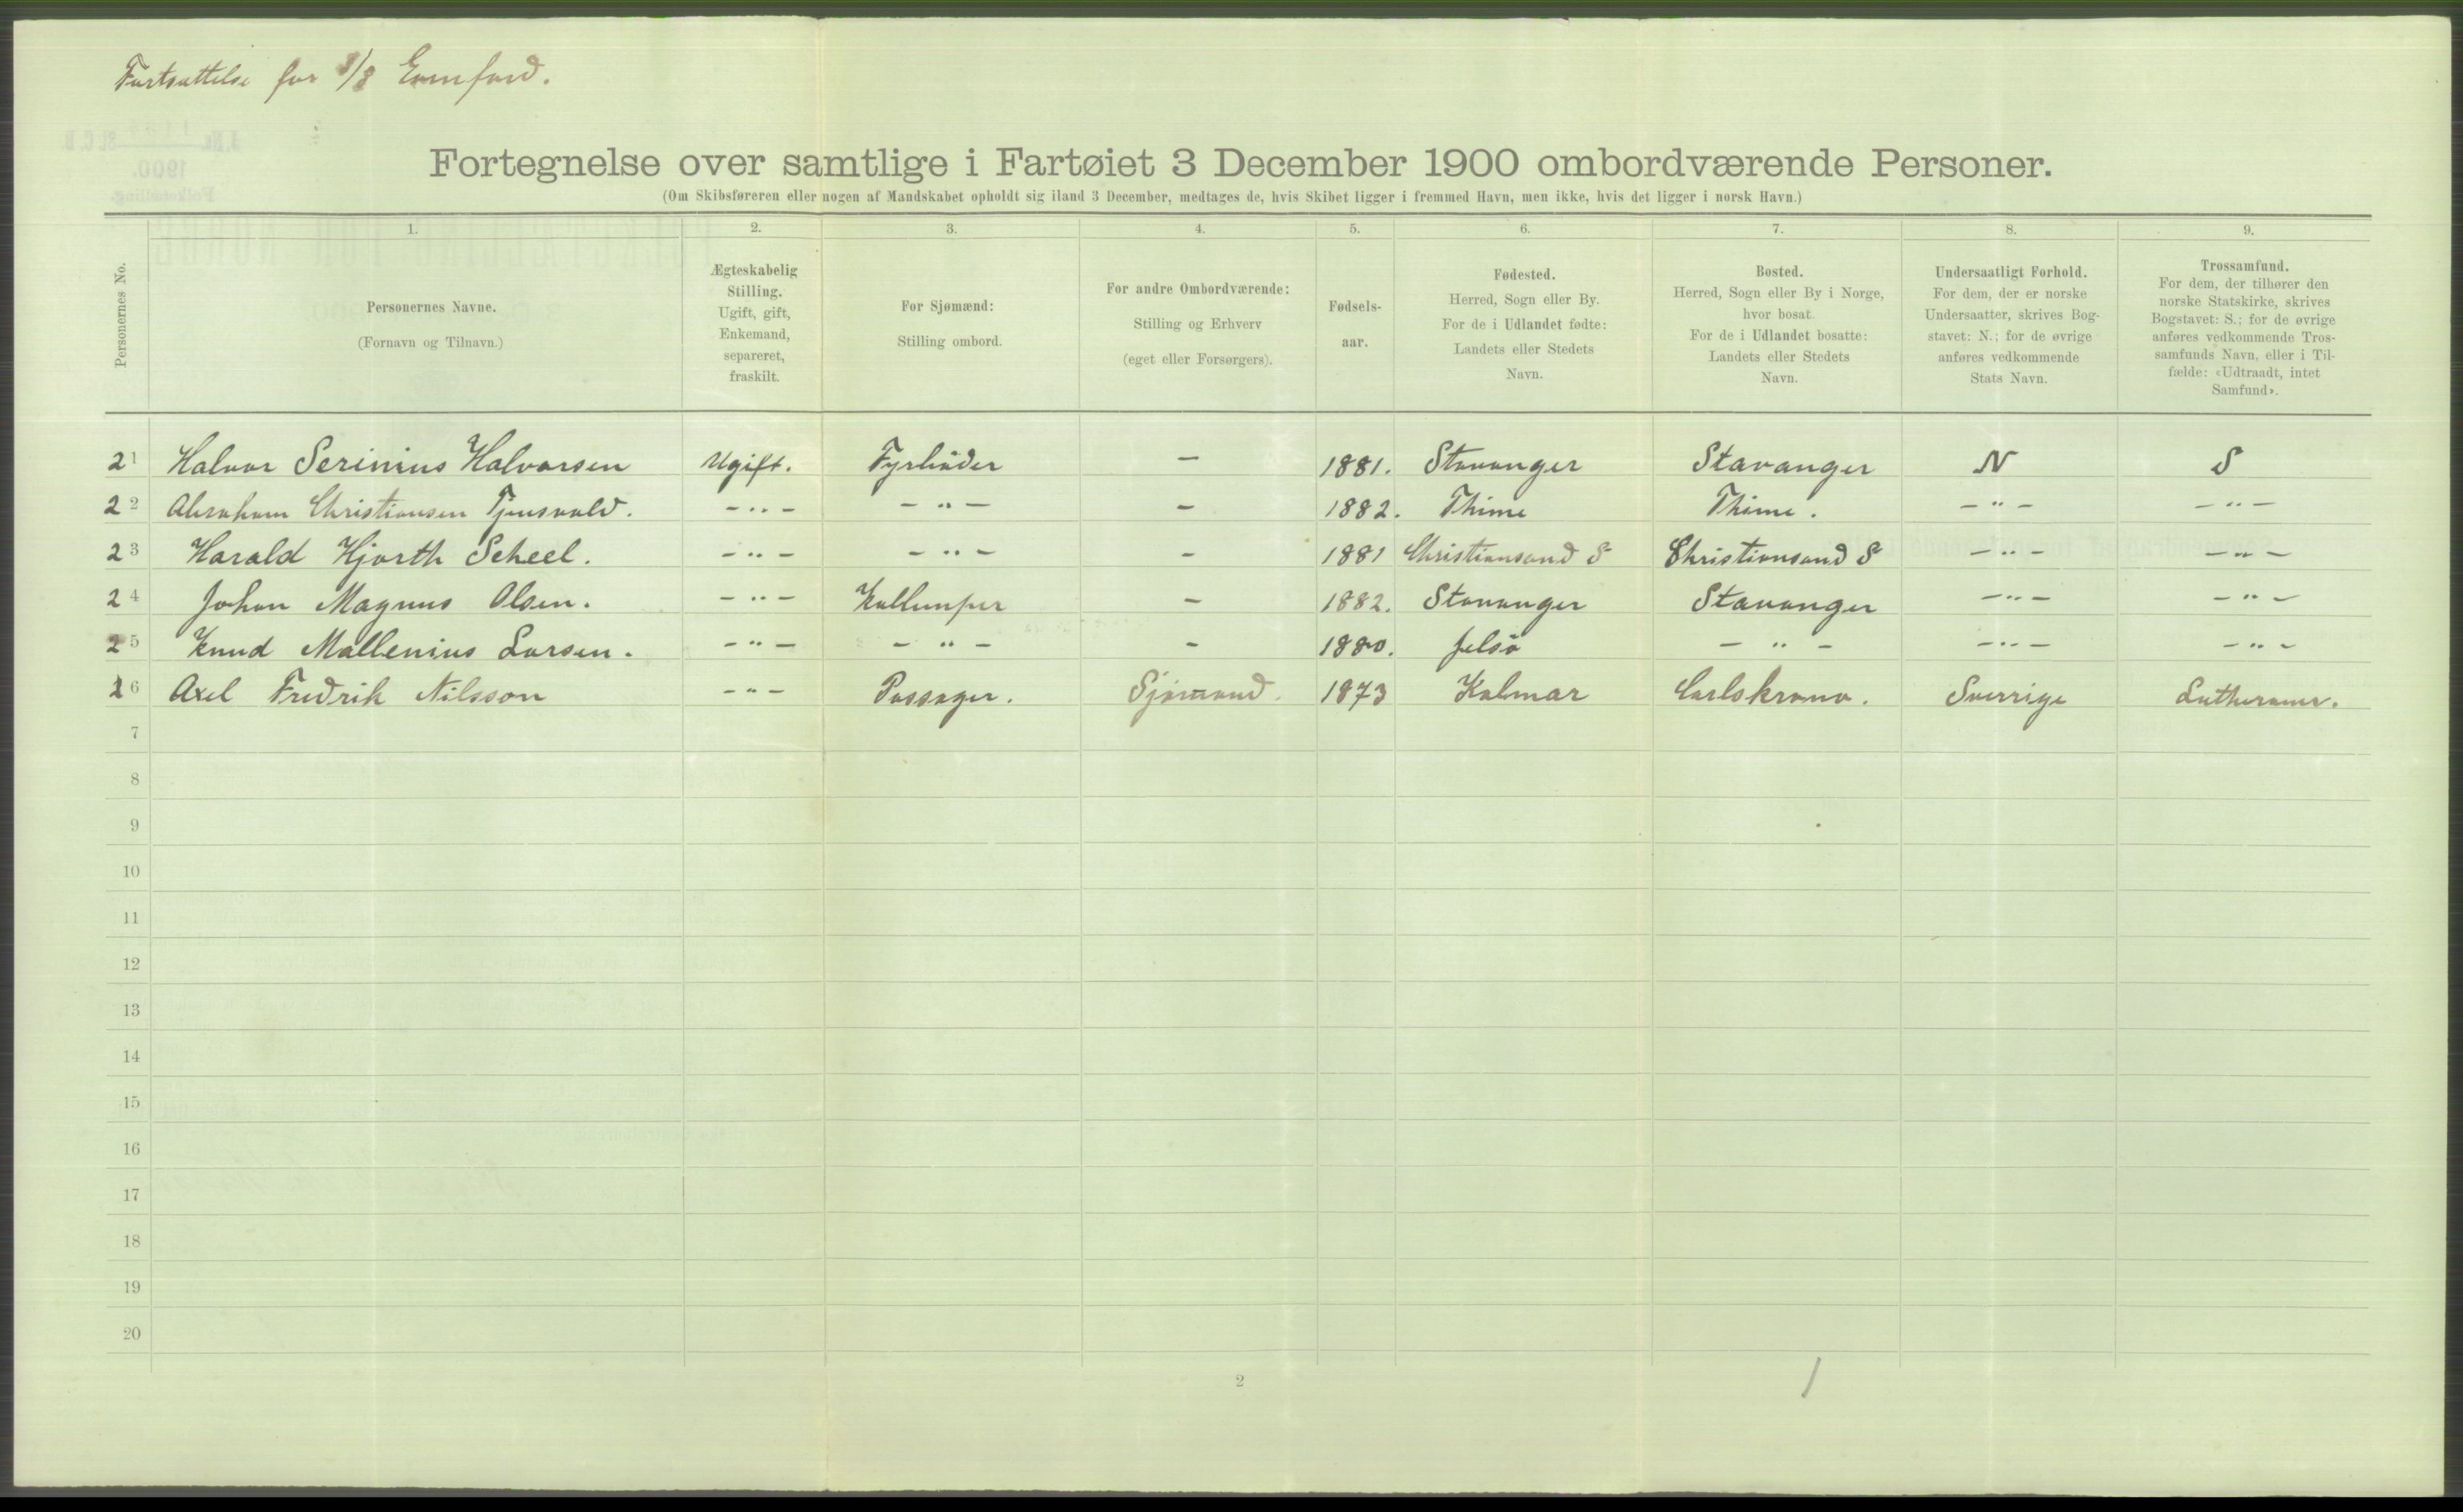 Fortsættelse for S/S
Fortegnelse over samtlige i Fartøiet 3 December 1900 ombordværende Personer.
(Om Skibsføreren eller nogen af Mandskabet opholdt sig iland 3 December, medtages de, hvis Skibet ligger i fremmed Havn, men ikke, hvis det ligger i norsk Havn.)
1. 2. 3. 4. 5. 6. 7. 8. 9.
Personernes No.
Personernes Navne.
(Fornavn og Tilnavn.)
Ægteskabelig
Stilling.
Ugift, gift,
Enkemand,
separeret,
fraskilt.
For Sjømænd:
Stilling ombord.
For andre Ombordværende:
Stilling og Erhverv
(eget eller Forsørgers).
Fødsels-
aar.
Fødested.
Herred, Sogn eller By.
For de i Udlandet fødte:
Landets eller Stedets
Navn.
Bosted.
Herred, Sogn eller By i Norge,
hvor bosat.
For de i Udlandet bosatte:
Landets eller Stedets
Navn.
Undersaatligt Forhold.
For dem, der er norske
Undersaatter, skrives Bog-
stavet: N.; for de øvrige
anføres vedkommende
Stats Navn.
Trossamfund.
For dem, der tilhører den
norske Statskirke, skrives
Bogstavet: S.; for de øvrige
anføres vedkommende Tros-
samfunds Navn, eller i Til-
fælde: «Udtraadt, intet
Samfund».
21 Halvor Serinius Halvorsen Ugift. Fyrbøder - 1881. Stavanger Stavanger N S
22 Abraham Christiansen -"- -"- - 1882. Thime Thime. -"- -"-
23 Harald Hjorth Scheel. -"- -"- - 1881 Christiansand S Christiansand S -"- -"-
24 Johan Magnus Olsen. -"- Kullemper - 1882. Stavanger Stavanger -"- -"-
25 Knud Mallenius Larsen. -"- -"- - 1880. Jelsø -"- -"- -"-
26 Axel Fredrik Nilsson -"- Passager. Sjømand. 1873 Kalmar Carlskrona. Sverrige Lutheraner.
7
8
9
10
11
12
13
14
15
16
17
18
19
20
2